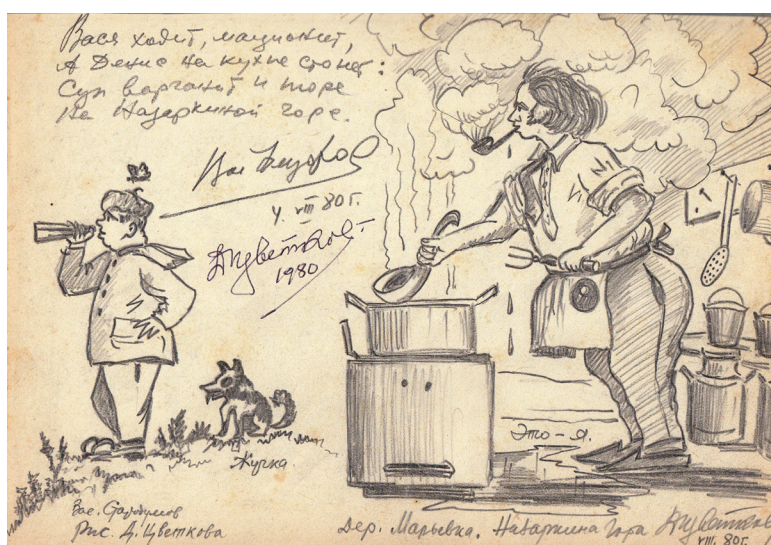 Вася ходит, мационит,
А Денис на кухне стонет:
Суп варганит и пюре
На Назаркиной горе.
Вас.
4. VIII 80 г.
ДЦветков
1980
Это – Я.
Жучка.
Вас. Стародумов
Рис. Д. Цветкова
Дер. Марьевка. Назаркина гора ДЦветков
VIII. 80 г.